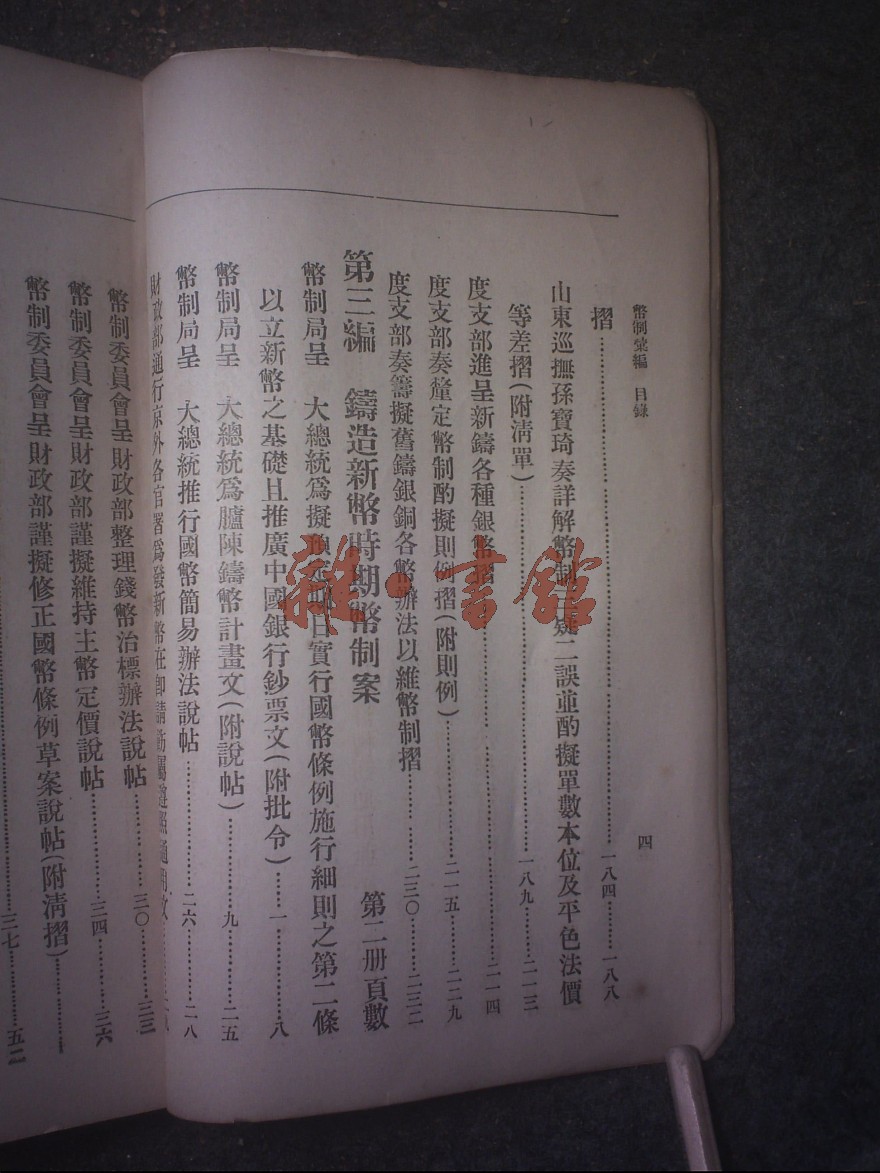 幣制彙編 目錄
四
摺……一八四……一八八
山東巡撫孫寶琦奏詳解幣制 疑二誤並酌擬單數本位及平色法價
等差摺(附清單)……一八九……二一三
度支部進呈新鑄各種銀幣摺……二一四
度支部奏釐定幣制酌擬則例摺(附則例)……二一五……二二九
度支部奏籌擬舊鑄銀銅各幣辦法以維幣制摺……二三〇……二三二
第三編 鑄造新幣時期幣制案 第二册頁數
幣制局呈 大總統爲擬預定 日實行國幣條例施行細則之第二條
以立新幣之基礎且推廣中國銀行鈔票文(附批令)……一……八
幣制局呈 大總統爲臚陳鑄幣計畫文(附說帖)……九……二五
幣制局呈 大總統推行國幣簡易辦法說帖……二六……二八
財政部通行京外各官署爲發新幣在卽請飭屬遵照通用文
幣制委員會呈財政部整理錢幣治標辦法說帖……三〇……三三
幣制委員會呈財政部謹擬維持主幣定價說帖……三四……三六
幣制委員會呈財政部謹擬修正國幣條例草案說帖(附清摺)……三七……五二
雜·書館